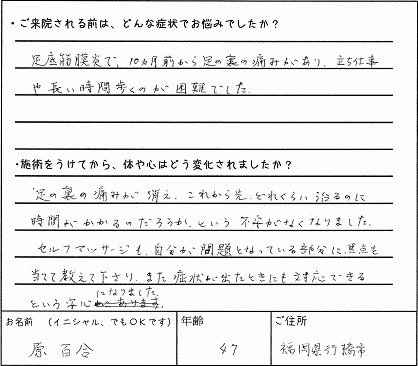 ・ご来院される前は、どんな症状でお悩みでしたか？
足底筋膜炎で、10ヵ月前から足の裏の痛みがあり、立ち仕事
や長い時間歩くのが困難でした。
・施術をうけてから、体や心はどう変化されましたか？
足の裏の痛みが消え、これから先、どれくらい治るのに
時間がかかるのだろうか、という不安がなくなりました。
セルフマッサージも、自分が問題となっている部分に、焦点も
当てて教えて下さり、また症状が出たときにも対応できる
になりました。
という安心
お名前 （イニシャル、でもＯＫです） 年齢 ご住所
原 百合 47 福岡県行橋市